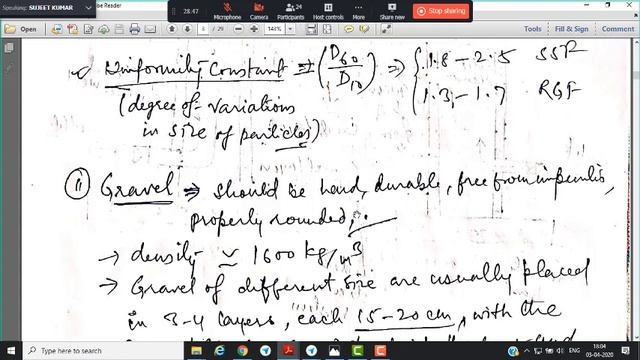 Speaking: SUJEET KUMAR
28:47
24
Microphone Camera Participants Host controls More Share new
Stop sharing
be Reader
/ 29
146%
Tools Fill & Sign Comment
Uniformity Constant ⇒ (D60/D10) ⇒ { 1.8 - 2.5 SSF
1.3 - 1.7 RGF
(degree of variations
in size of particles)
(ii) Gravel ⇒ should be hard, durable, free from impurities,
properly rounded,
→ density ≃ 1600 kg/m³
→ Gravel of different size are usually placed
in 3-4 layers, each 15-20 cm, with the
Type here to search
ENG
18:04
03-04-2020